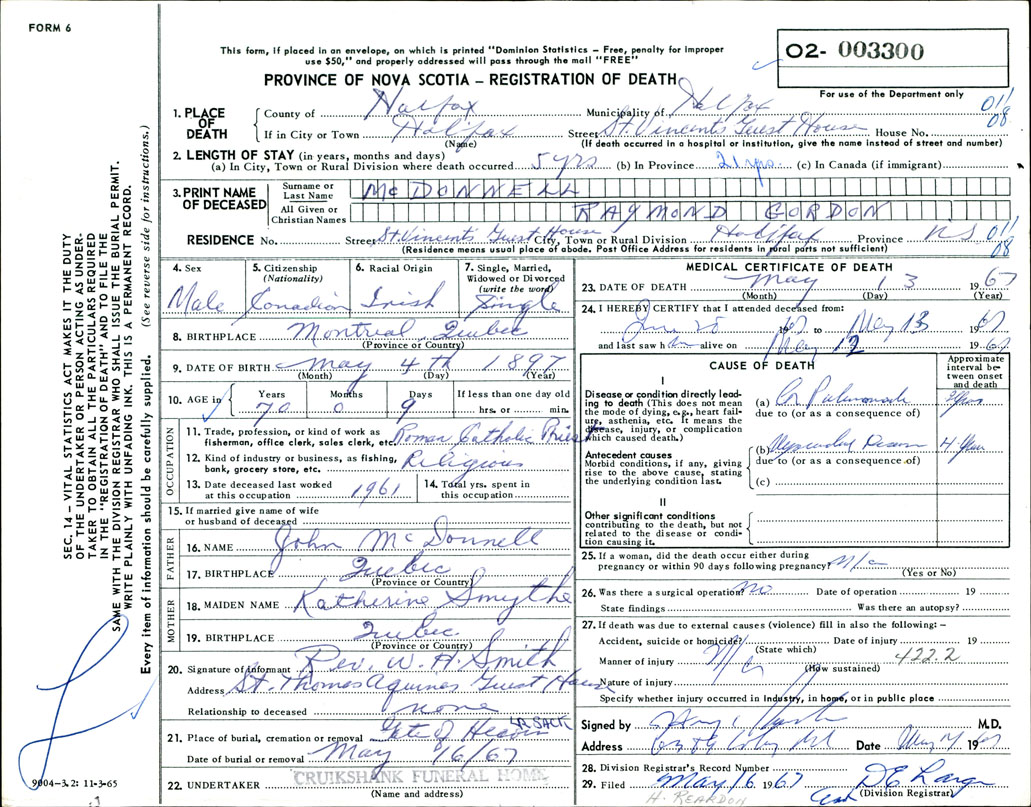 FORM 6
This form, if placed in an envelope, on which is printed "Dominion Statistics – Free, penalty for improper
use $50," and properly addressed will pass through the mail "FREE"
O2- 003300
For use of the Department only
PROVINCE OF NOVA SCOTIA – REGISTRATION OF DEATH
011
08
1. PLACE OF DEATH
County of Halifax Municipality of Halifax
If in City or Town Halifax Street St. Vincent's Guest House House No.
(Name) (If death occurred in a hospital or institution, give the name instead of street and number)
2. LENGTH OF STAY (in years, months and days)
(a) In City, Town or Rural Division where death occurred 5 yrs (b) In Province 21 yrs. (c) In Canada (if immigrant)
3. PRINT NAME OF DECEASED
Surname or Last Name McDONNELL
All Given or Christian Names RAYMOND GORDON
RESIDENCE No. Street St Vincent's Guest House City, Town or Rural Division Halifax Province NS
(Residence means usual place of abode. Post Office Address for residents in rural parts not sufficient)
011
08
4. Sex
Male
5. Citizenship (Nationality)
Canadian
6. Racial Origin
Irish
7. Single, Married, Widowed or Divorced (write the word)
Single
8. BIRTHPLACE Montreal Quebec
(Province or Country)
9. DATE OF BIRTH May 4th 1897
(Month) (Day) (Year)
10. AGE in Years Months Days If less than one day old
70 0 9 hrs. or min.
OCCUPATION
11. Trade, profession, or kind of work as
fisherman, office clerk, sales clerk, etc. Roman Catholic Priest
12. Kind of industry or business, as fishing,
bank, grocery store, etc. Religious
13. Date deceased last worked
at this occupation 1961
14. Total yrs. spent in
this occupation
15. If married give name of wife
or husband of deceased
FATHER
16. NAME John McDonnell
17. BIRTHPLACE Quebec
(Province or Country)
MOTHER
18. MAIDEN NAME Katherine Smythe
19. BIRTHPLACE Quebec.
(Province or Country)
20. Signature of informant Rev. W. A. Smith
Address St. Thomas Aquinas Guest House
Relationship to deceased none
21. Place of burial, cremation or removal Gate of Heaven LR SACK
Date of burial or removal May 16/67
22. UNDERTAKER CRUIKSHANK FUNERAL HOME
(Name and address)
MEDICAL CERTIFICATE OF DEATH
23. DATE OF DEATH May 13 1967
(Month) (Day) (Year)
24. I HEREBY CERTIFY that I attended deceased from:
to May 13 1967
and last saw him alive on May 12 1967
CAUSE OF DEATH
Approximate interval between onset and death
I
Disease or condition directly leading to death (This does not mean
the mode of dying, e.g., heart failure, asthenia, etc. It means the
disease, injury, or complication
which caused death.)
(a) Cor Pulmonale
due to (or as a consequence of)
Antecedent causes
Morbid conditions, if any, giving
rise to the above cause, stating
the underlying condition last.
(b)
due to (or as a consequence of)
(c)
II
Other significant conditions
contributing to the death, but not
related to the disease or condition causing it.
25. If a woman, did the death occur either during
pregnancy or within 90 days following pregnancy?
(Yes or No)
26. Was there a surgical operation? no Date of operation 19
State findings Was there an autopsy?
27. If death was due to external causes (violence) fill in also the following: –
Accident, suicide or homicide? Date of injury 19
(State which)
Manner of injury 422.2
(How sustained)
Nature of injury
Specify whether injury occurred in Industry, in home, or in public place
Signed by M.D.
Address Date May 19 67
28. Division Registrar's Record Number
29. Filed May 16 1967
(Division Registrar)
H. REARDON
SEC. 14 – VITAL STATISTICS ACT MAKES IT THE DUTY
OF THE UNDERTAKER OR PERSON ACTING AS UNDER-
TAKER TO OBTAIN ALL THE PARTICULARS REQUIRED
IN THE "REGISTRATION OF DEATH" AND TO FILE THE
SAME WITH THE DIVISION REGISTRAR WHO SHALL ISSUE THE BURIAL PERMIT.
WRITE PLAINLY WITH UNFADING INK. THIS IS A PERMANENT RECORD.
Every item of information should be carefully supplied. (See reverse side for instructions.)
9004–3.2: 11-3-65